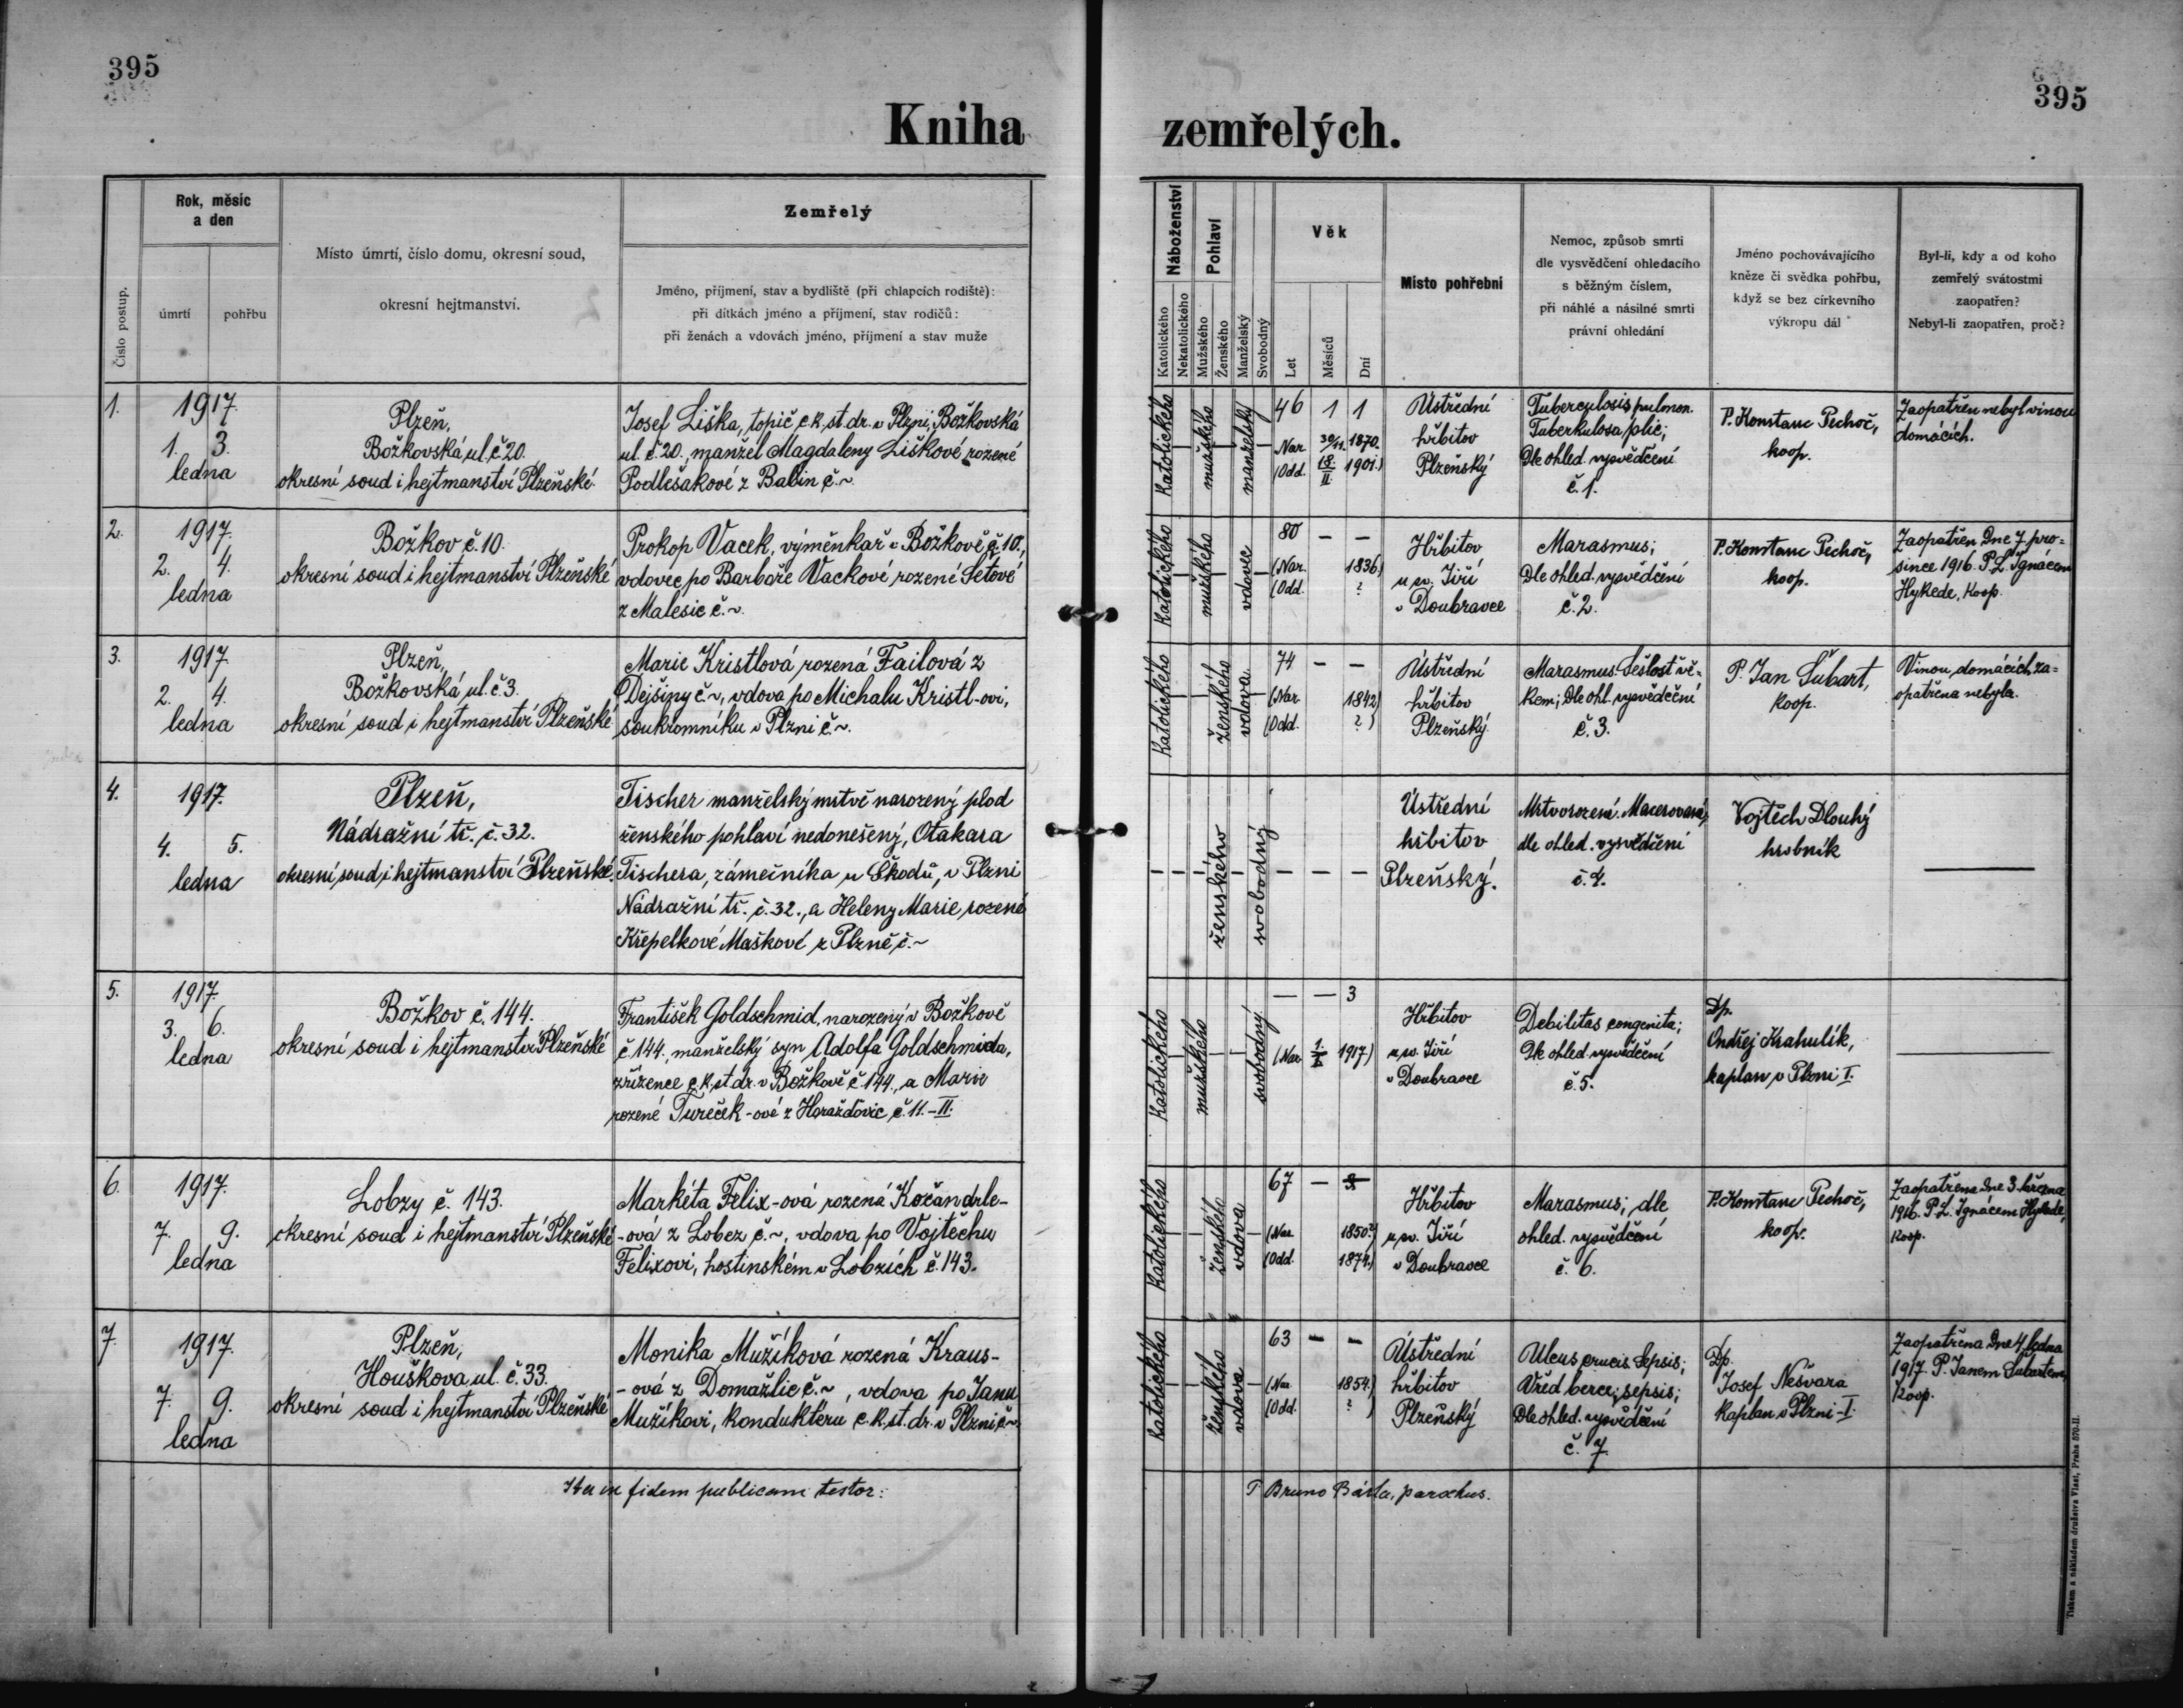 395
395
Kniha zemřelých.
Číslo postup.
Rok, měsíc
a den
úmrtí
pohřbu
Místo úmrtí, číslo domu, okresní soud,
okresní hejtmanství.
Zemřelý
Jméno, příjmení, stav a bydliště (při chlapcích rodiště):
při dítkách jméno a příjmení, stav rodičů:
při ženách a vdovách jméno, příjmení a stav muže
Náboženství
Katolického
Nekatolického
Pohlaví
Mužského
Ženského
Manželský
Svobodný
Věk
Let
Měsíců
Dní
Místo pohřební
Nemoc, způsob smrti
dle vysvědčení ohledacího
s běžným číslem,
při náhlé a násilné smrti
právní ohledání
Jméno pochovávajícího
kněze či svědka pohřbu,
když se bez církevního
výkropu dál
Byl-li, kdy a od koho
zemřelý svátostmi
zaopatřen?
Nebyl-li zaopatřen, proč?
1.
1917.
1. 3.
ledna
Plzeň,
Božkovská ul. č. 20.
okresní soud i hejtmanství Plzeňské.
Josef Liška, topič c. k. st. dr. v Plzni, Božkovská
ul. č. 20., manžel Magdaleny Liškové rozené
Podlešakové z Babin č. ~
Katolického
mužského
manželský
46 1 1
Nar. 30/11. 1870.
(Odd. 18./II. 1901.)
Ústřední
hřbitov
Plzeňský
Tuberculosis pulmon.
Tuberkulosa plic;
Dle ohled. vysvědčení
č. 1.
P. Konstanc Pechoč,
koop.
Zaopatřen nebyl vinou
domácích.
2.
1917.
2. 4.
ledna
Božkov č. 10.
okresní soud i hejtmanství Plzeňské
Prokop Vacek, výměnkař v Božkově č. 10.,
vdovec po Barboře Vackové rozené Šetové
z Malesic č. ~
Katolického
mužského
vdovec
80 — —
(Nar. 1836)
(Odd. ?
Hřbitov
u sv. Jiří
v Doubravce
Marasmus;
Dle ohled. vysvědčení
č. 2.
P. Konstanc Pechoč,
koop.
Zaopatřen dne 7. pro=
since 1916. P. L. Ignácem
Hykede, koop.
3.
1917.
2. 4.
ledna
Plzeň,
Božkovská ul. č. 3.
okresní soud i hejtmanství Plzeňské
Marie Kristlová rozená Failová z
Dejšiny č. ~, vdova po Michalu Kristl-ovi,
soukromníku v Plzni č. ~
Katolického
ženského
vdova
74 — —
(Nar. 1842
(Odd. ? )
Ústřední
hřbitov
Plzeňský
Marasmus. Sešlost vě=
kem; Dle ohl. vysvědčení
č. 3.
P. Jan Šubart,
koop.
Vinou domácích za=
opatřena nebyla.
4.
1917.
4. 5.
ledna
Plzeň,
Nádražní tř. č. 32.
okresní soud i hejtmanství Plzeňské.
Tischer manželský mrtvě narozený plod
ženského pohlaví nedonešený, Otakara
Tischera, zámečníka u Škodů, v Plzni
Nádražní tř. č. 32., a Heleny Marie rozené
Křepelkové Maškové z Plzně č. ~
ženského
svobodný
Ústřední
hřbitov
Plzeňský.
Mrtvorozená. Macerovaná;
dle ohled. vysvědčení
č. 4.
Vojtěch Dlouhý
hrobník
5.
1917.
3. 6.
ledna
Božkov č. 144.
okresní soud i hejtmanství Plzeňské
František Goldschmid, narozený v Božkově
č. 144., manželský syn Adolfa Goldschmida,
zřízence c. k. st. dr. v Božkově č. 144., a Marie
rozené Tureček-ové z Horažďovic č. 11.-II.
Katolického
mužského
svobodný
— — 3
(Nar. 1./I. 1917.)
Hřbitov
u sv. Jiří
v Doubravce
Debilitas congenita;
Dle ohled. vysvědčení
č. 5.
Dp.
Ondřej Krahulík,
kaplan v Plzni I.
6.
1917.
7. 9.
ledna
Lobzy č. 143.
okresní soud i hejtmanství Plzeňské
Markéta Felix-ová rozená Kočandrle-
-ová z Lobez č. ~, vdova po Vojtěchu
Felixovi, hostinském v Lobzích č. 143.
Katolického
ženského
vdova
67 —
(Nar. 1850?)
(Odd. 1874.)
Hřbitov
u sv. Jiří
v Doubravce
Marasmus; dle
ohled. vysvědčení
č. 6.
P. Konstanc Pechoč,
koop.
Zaopatřena dne 3.
1916. P. L. Ignácem Hykede,
koop.
7.
1917.
7. 9.
ledna
Plzeň,
Houškova ul. č. 33.
okresní soud i hejtmanství Plzeňské
Monika Mužíková rozená Kraus-
-ová z Domažlic č. ~, vdova po Janu
Mužíkovi, kondukteru c. k. st. dr. v Plzni č. ~
Katolického
ženského
vdova
63 — —
(Nar. 1854.)
(Odd. ? )
Ústřední
hřbitov
Plzeňský
Ulcus cruris Sepsis;
Vřed berce; sepsis;
Dle ohled. vysvědčení
č. 7.
Dp.
Josef Nešvara
kaplan v Plzni-I.
Zaopatřena dne 4. ledna
1917. P. Janem Šubartem,
koop.
Ita in fidem publicam testor:
P. Bruno Bárta, parochus.
Tiskem a nákladem družstva Vlast, Praha 570-II.